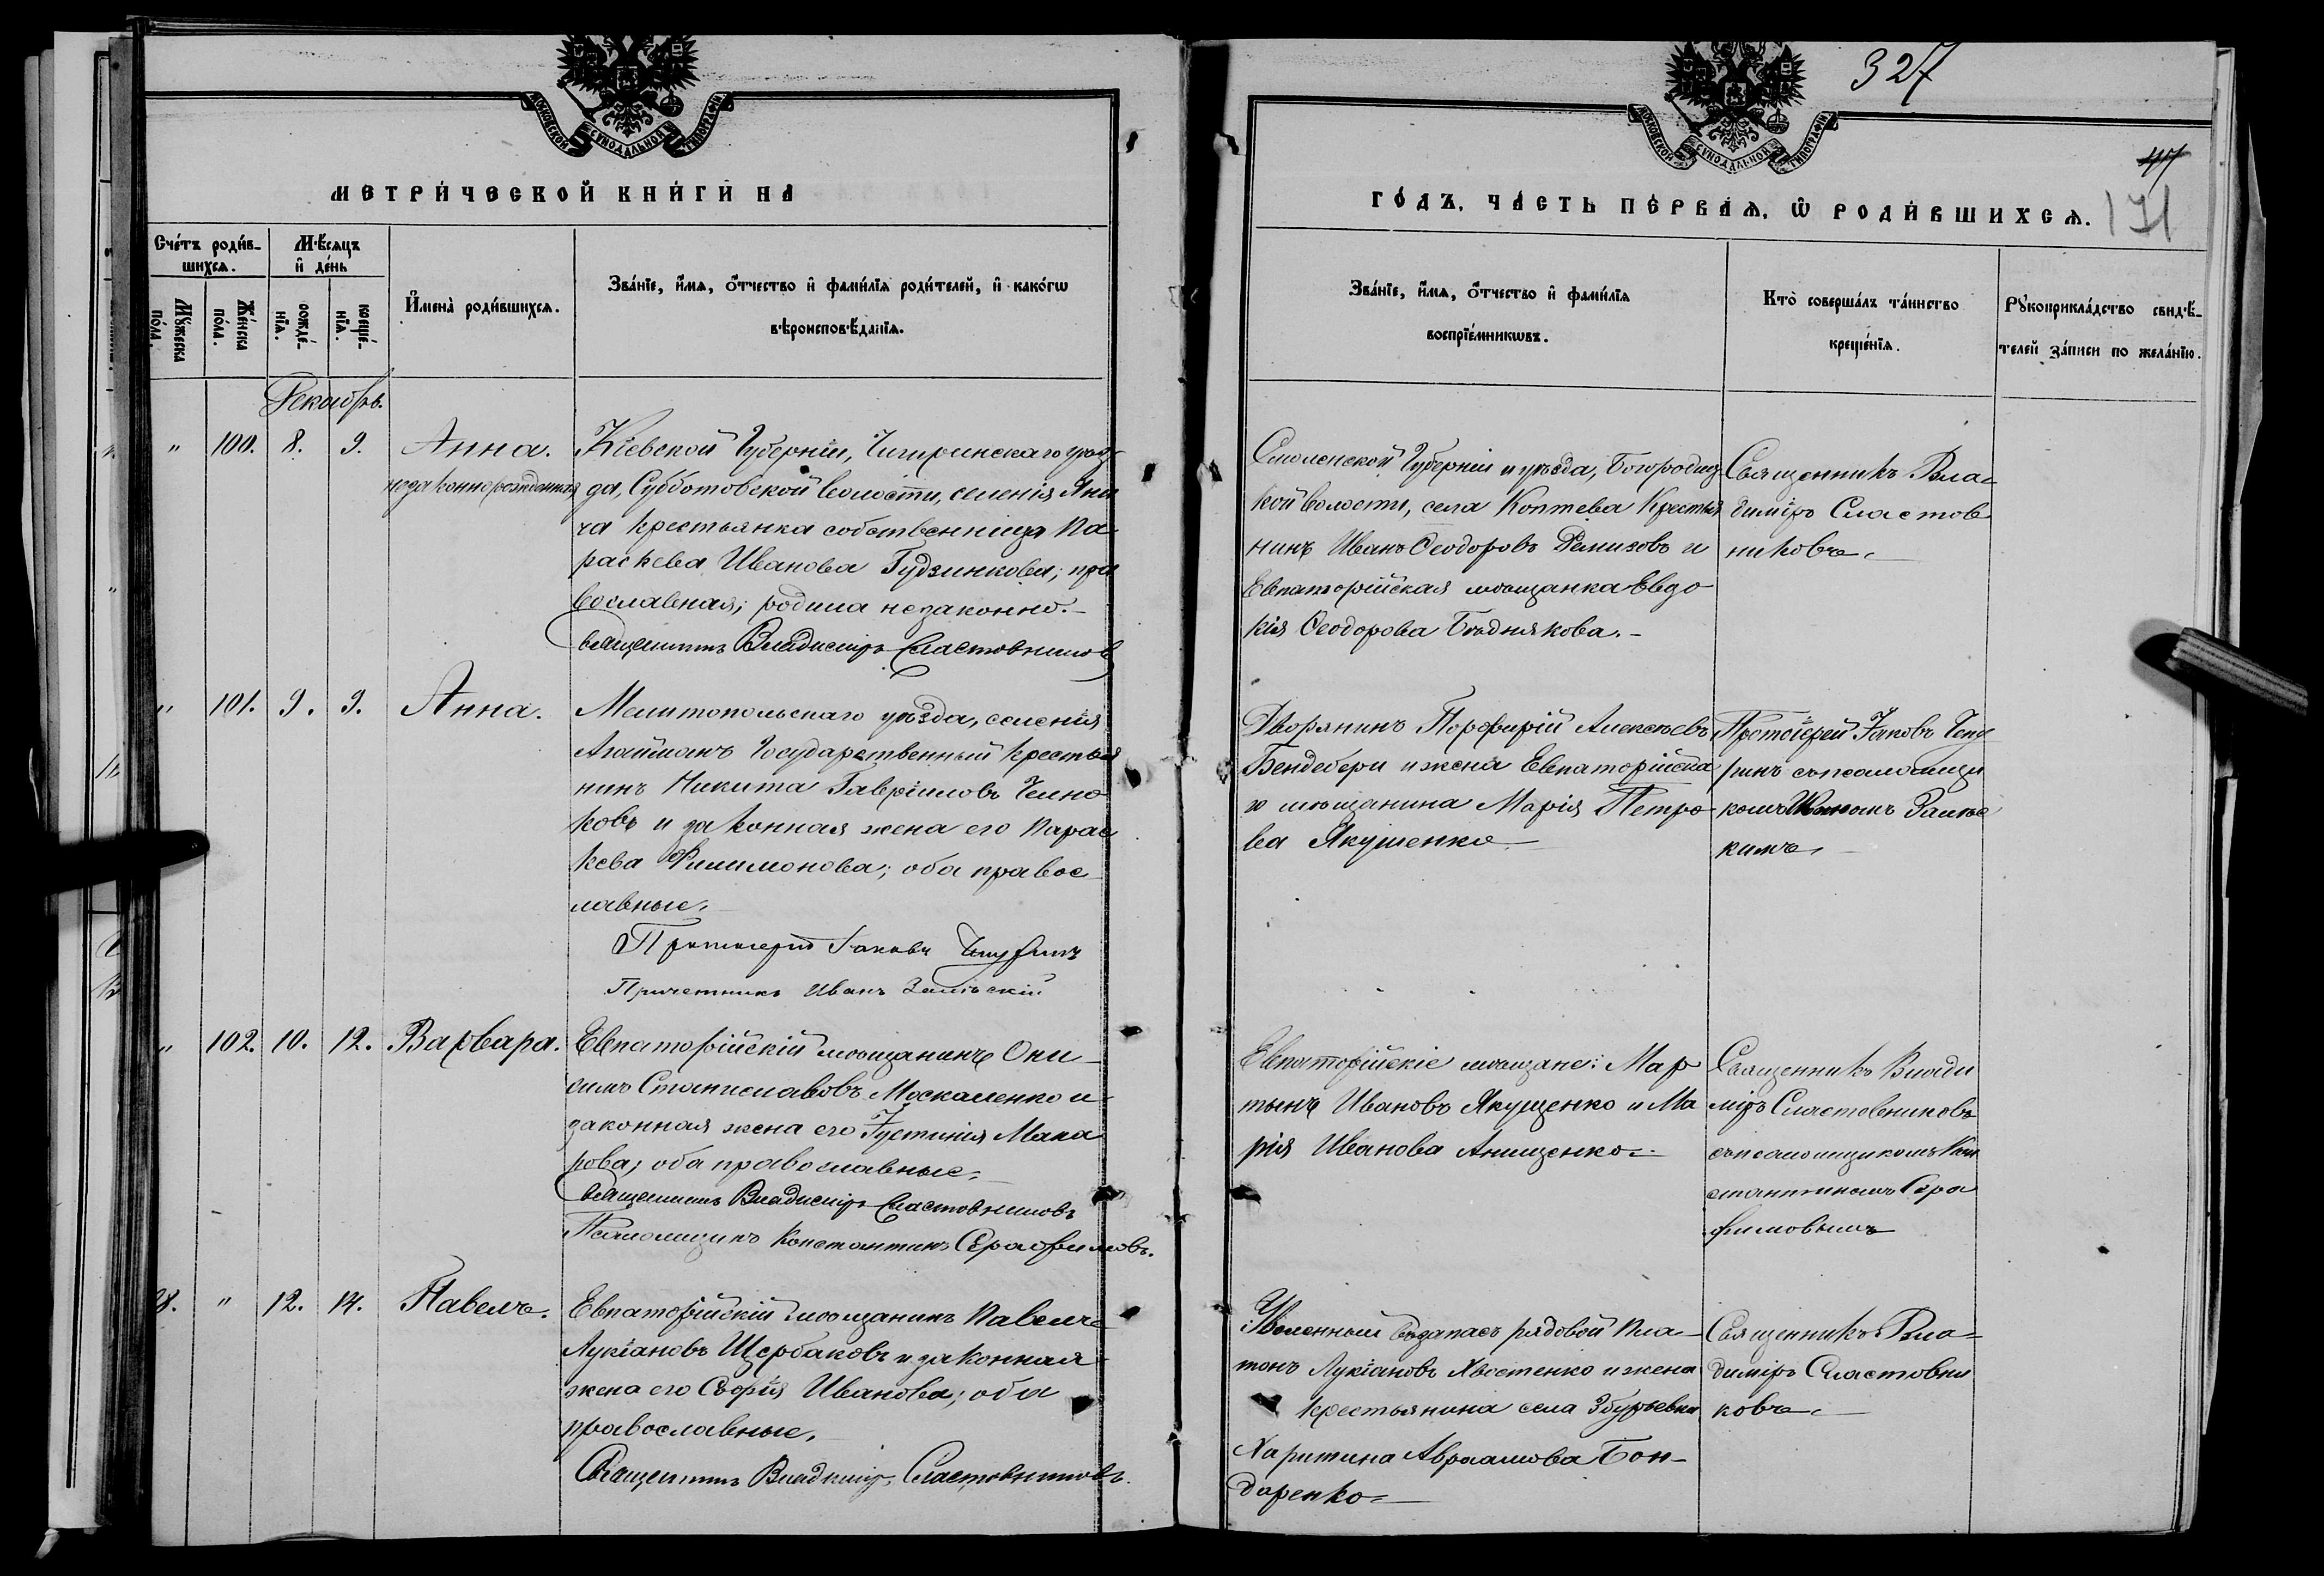 МОСКОВСКОЙ СѴНОДАЛЬНОЙ ТИПОГРАФІИ
МЕТРИ́ЧЕСКОЙ КНИ́ГИ НА
Сче́тъ роди́в-
шихся.
Мѣ́сяцъ
и҆ де́нь
Му́жеска
по́ла.
Же́нска
по́ла.
рожде́-
нїя.
креще́-
нїя.
И҆мена̀ роди́вшихся.
Зва́нїе, и҆́мя, ѻ҆́тчество и҆ фами́лїя роди́телей, и҆ како́гѡ
вѣроисповѣ́данїя.
Декабрь.
" 100. 8. 9. Анна.
незаконнорожденная
Кіевской Губерніи, Чигиринскаго уѣз
да, Субботовской волости, селенія Яни
ча крестьянка собственница Па
раскева Иванова Гудзинкова; пра
вославная; родила незаконно.-
Священникъ Владиміръ Сластовников
" 101. 9. 9. Анна.
Мелитопольскаго уѣзда, селенія
Агайманъ Государственный крестья
нинъ Никита Гавріиловъ Челно
ковъ и законная жена его Парас
кева Филимонова; оба правос
лавные.
Протоіерей Іаковъ Чепуринъ
Причетникъ Иванъ Залѣскій
" 102. 10. 12. Варвара.
Евпаторійскій мѣщанинъ Они
симъ Станиславовъ Москаленко и
законная жена его Іустинія Мака
рова; оба православные.
Священникъ Владиміръ Сластовниковъ
Псаломщикъ Константинъ Серафимовъ.
8. " 12. 14. Павелъ.
Евпаторійскій мѣщанинъ Павелъ
Лукіановъ Щербаковъ и законная
жена его Софія Иванова; оба
православные.
Священникъ Владиміръ Сластовниковъ.
327
МОСКОВСКОЙ СѴНОДАЛЬНОЙ ТИПОГРАФІИ
47
171
ГО́ДЪ, ЧА́СТЬ ПЕ́РВАЯ, Ѡ РОДИ́ВШИХСЯ.
Зва́нїе, и҆́мя, ѻ҆́тчество и҆ фами́лїя
воспрїе́мникѡвъ.
Кто̀ соверша́лъ та́инство
креще́нїя.
Рꙋкоприкла́дство свидѣ́-
телей за́писи по жела́нїю.
Смоленской Губерніи и уѣзда, Богородиц
кой волости, села Коптева Крестья
нинъ Иванъ Ѳеодоровъ Ремизовъ и
Евпаторійская мѣщанка Евдо
кія Ѳеодорова Бѣднякова.-
Священникъ Вла-
диміръ Сластов
никовъ.
Дворянинъ Порфирій Алексѣевъ
Бендебери и жена Евпаторійска
го мѣщанина Марія Петро
ва Якушенко
Протоіерей Іаковъ Чепу
ринъ съ псаломщи
комъ Иваномъ Залѣс
кимъ.
Евпаторійскіе мѣщане: Мар
тынъ Ивановъ Якущенко и Ма
рія Иванова Анищенко.
Священникъ Влади
міръ Сластовниковъ
съ псаломщикомъ Кон
стантиномъ Сера
фимовымъ
Уволенный въ запасъ рядовой Пла-
тонъ Лукіановъ Хвостенко и жена
крестьянина села Збурьевки
Харитина Авраамова Бон-
даренко.
Священникъ Вла-
диміръ Сластовни
ковъ.